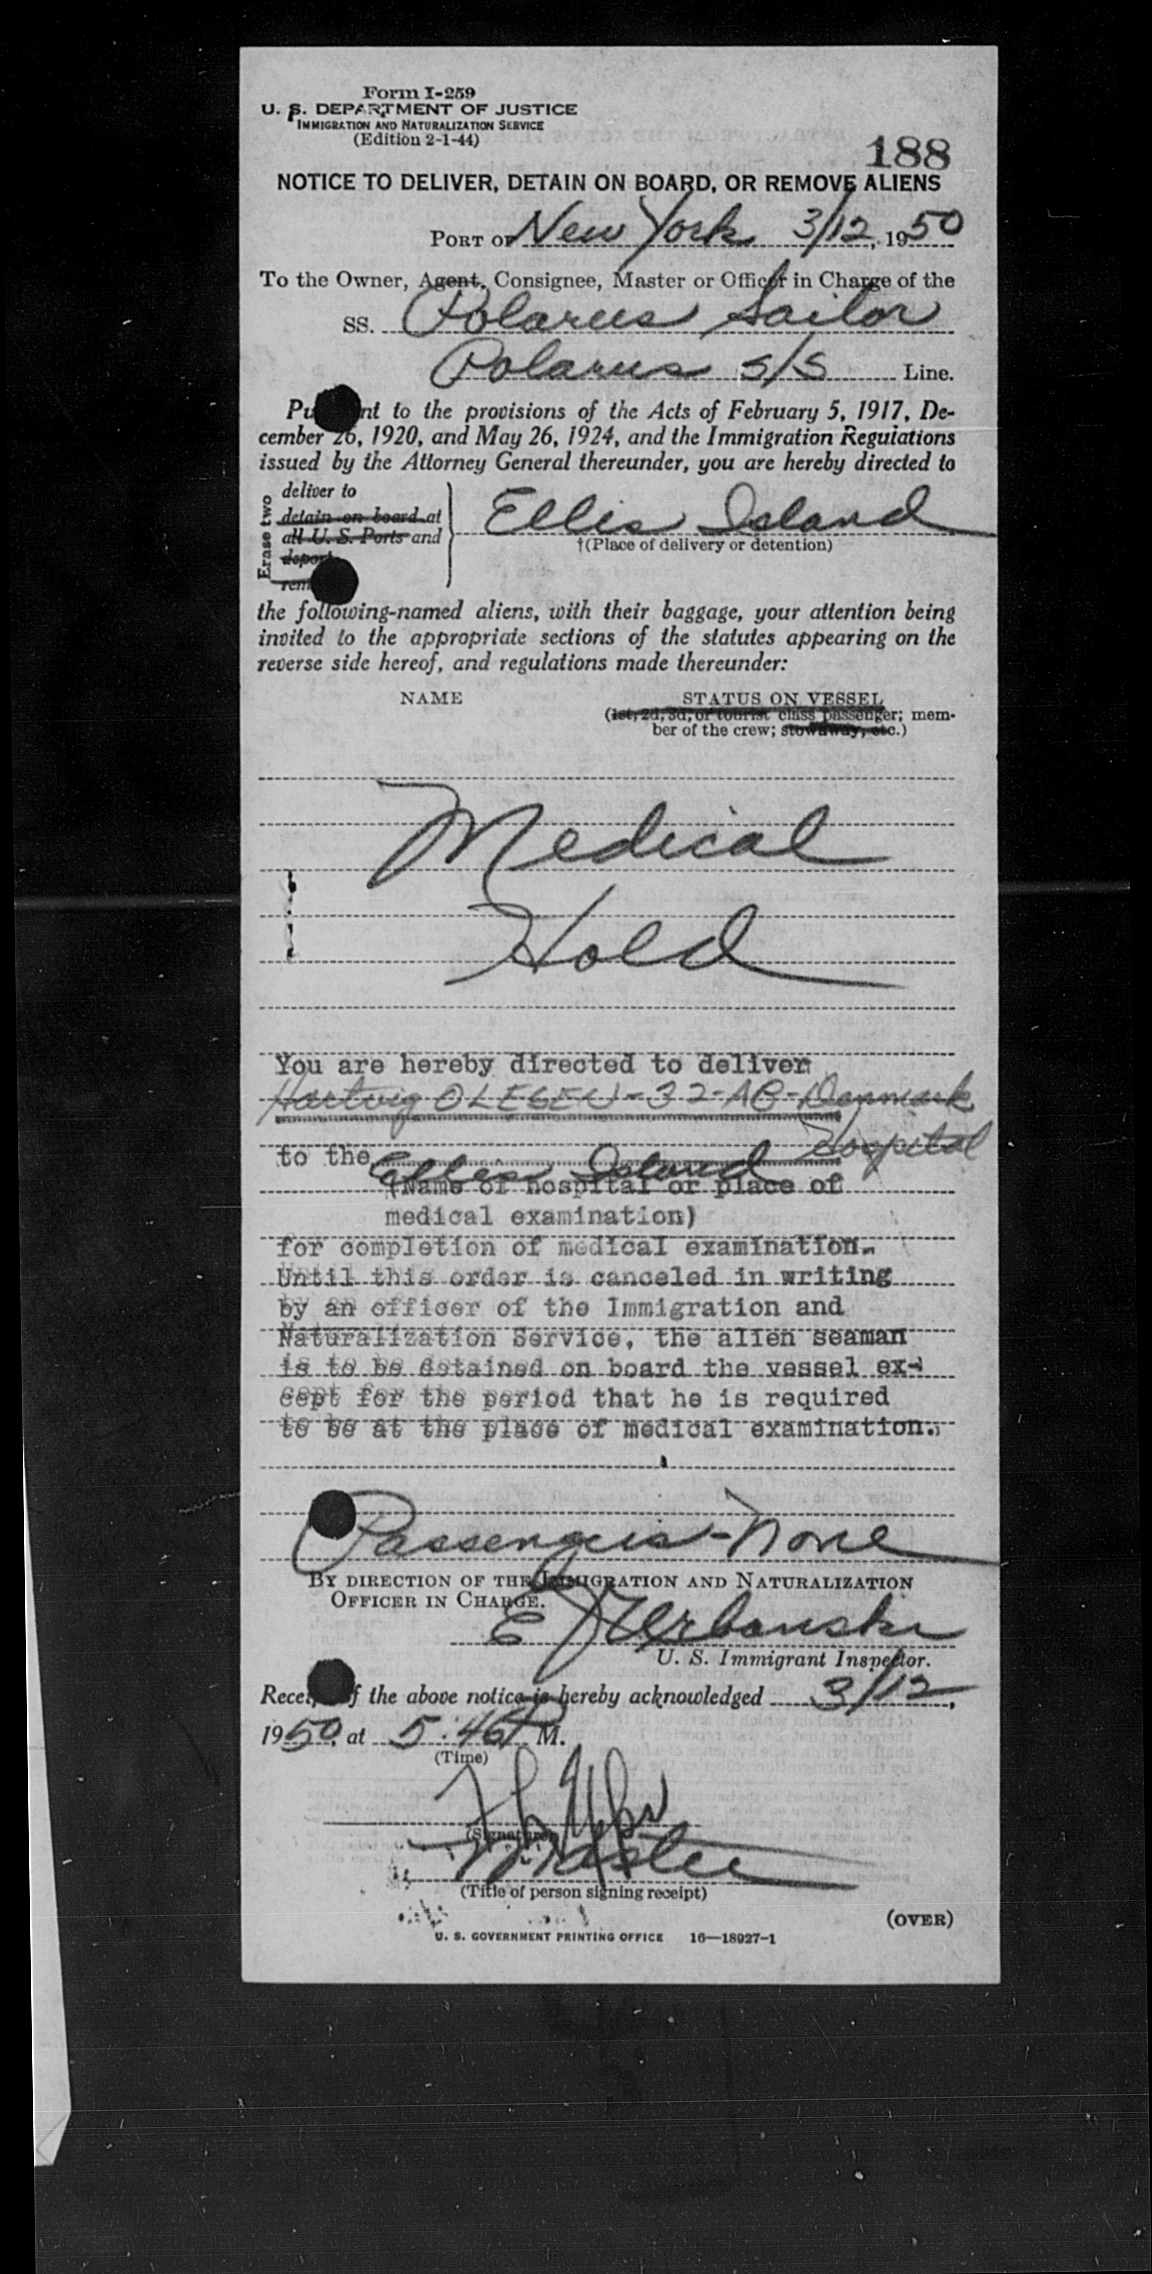 Form I-259
U. S. DEPARTMENT OF JUSTICE
IMMIGRATION AND NATURALIZATION SERVICE
(Edition 2-1-44)
188
NOTICE TO DELIVER, DETAIN ON BOARD, OR REMOVE ALIENS
PORT OF New York 3/12, 1950
To the Owner, Agent, Consignee, Master or Officer in Charge of the
SS. Polarus Sailor
Polarus S/S Line.
Pu nt to the provisions of the Acts of February 5, 1917, De-
cember 26, 1920, and May 26, 1924, and the Immigration Regulations
issued by the Attorney General thereunder, you are hereby directed to
Erase two
deliver to
detain on board at
all U. S. Ports and
deport
rem
Ellis Island
†(Place of delivery or detention)
the following-named aliens, with their baggage, your attention being
invited to the appropriate sections of the statutes appearing on the
reverse side hereof, and regulations made thereunder:
NAME STATUS ON VESSEL
(1st, 2d, 3d, or tourist class passenger; mem-
ber of the crew; stowaway, etc.)
Medical
Hold
You are hereby directed to deliver
Hartvig OLESEN-32-AB-Danmark
to the Ellis Island Hospital
(Name of hospital or place of
medical examination)
for completion of medical examination.
Until this order is canceled in writing
by an officer of the Immigration and
Naturalization Service, the alien seaman
is to be detained on board the vessel ex-
cept for the period that he is required
to be at the place of medical examination.
Passengers-None
BY DIRECTION OF THE IMMIGRATION AND NATURALIZATION
OFFICER IN CHARGE.
E J Urbanski
U. S. Immigrant Inspector.
Recei f the above notice is hereby acknowledged 3/12,
1950, at 5:46 P M.
(Time)
(Signature)
Master
(Title of person signing receipt)
(OVER)
U. S. GOVERNMENT PRINTING OFFICE 16—18927-1